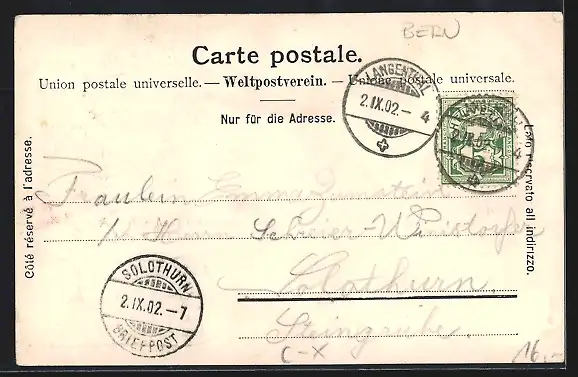 BERN
Carte postale.
Union postale universelle. — Weltpostverein. — Unione postale universale.
Nur für die Adresse.
LANGENTHAL
2.IX.02.-4
LANGENTHAL
2.IX.02.-4
Côté réservé à l'adresse.
Lato riservato all indirizzo.
Fräulein Emma
p/ Herrn Schreier-
Solothurn.
Steingrube.
SOLOTHURN
2.IX.02.-7
BRIEFPOST
C-X
16.-